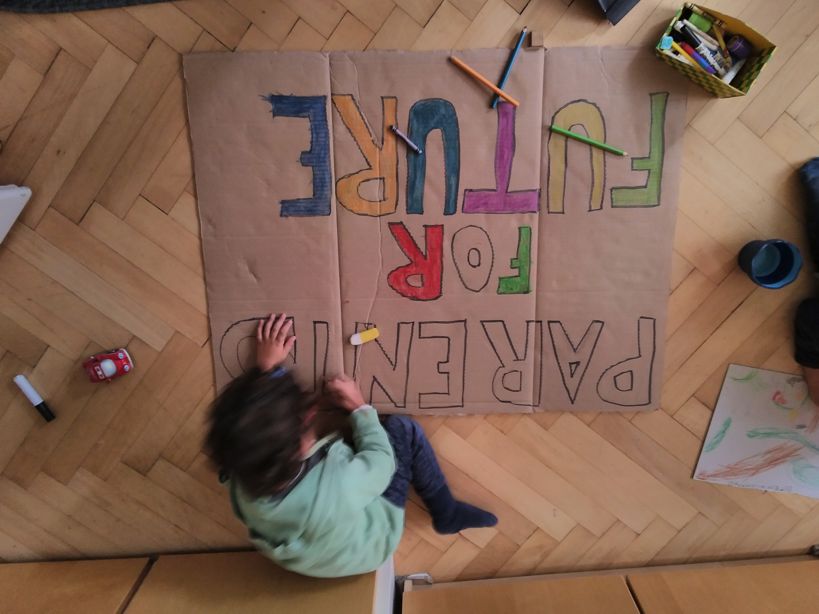 PARENTS
FOR
FUTURE